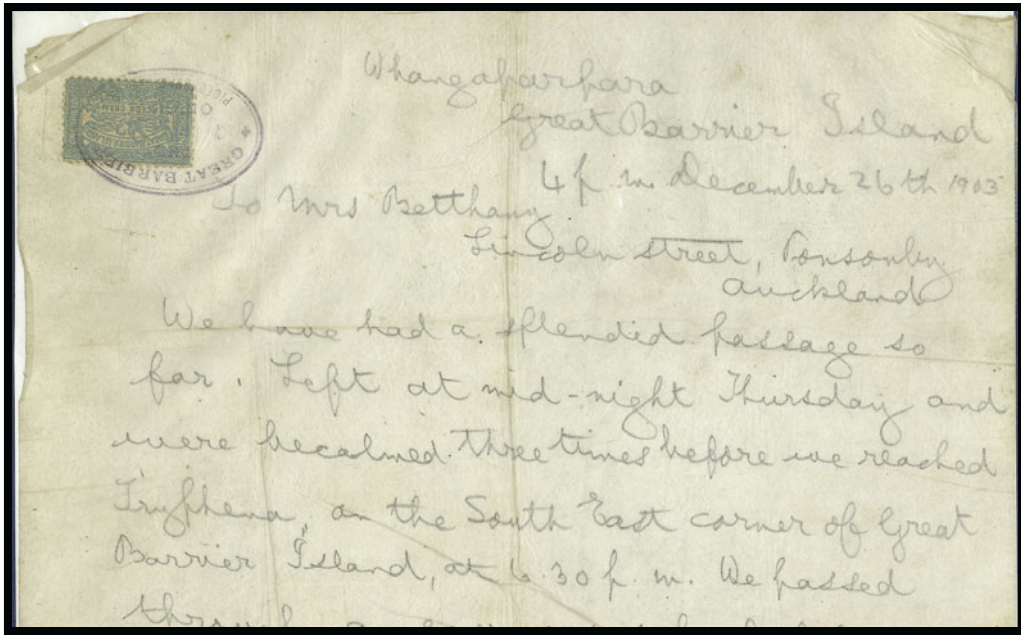 GREAT BARRIE
Whangaparapara
Great Barrier Island
4 p.m. December 26th 1903
To Mrs Betthany
Lincoln street, Ponsonby
Auckland
We have had a splendid passage so
far. Left at mid-night Thursday and
were becalmed three times before we reached
Tryphena, on the South East corner of Great
Barrier Island, at 6.30 p.m. We passed
through a